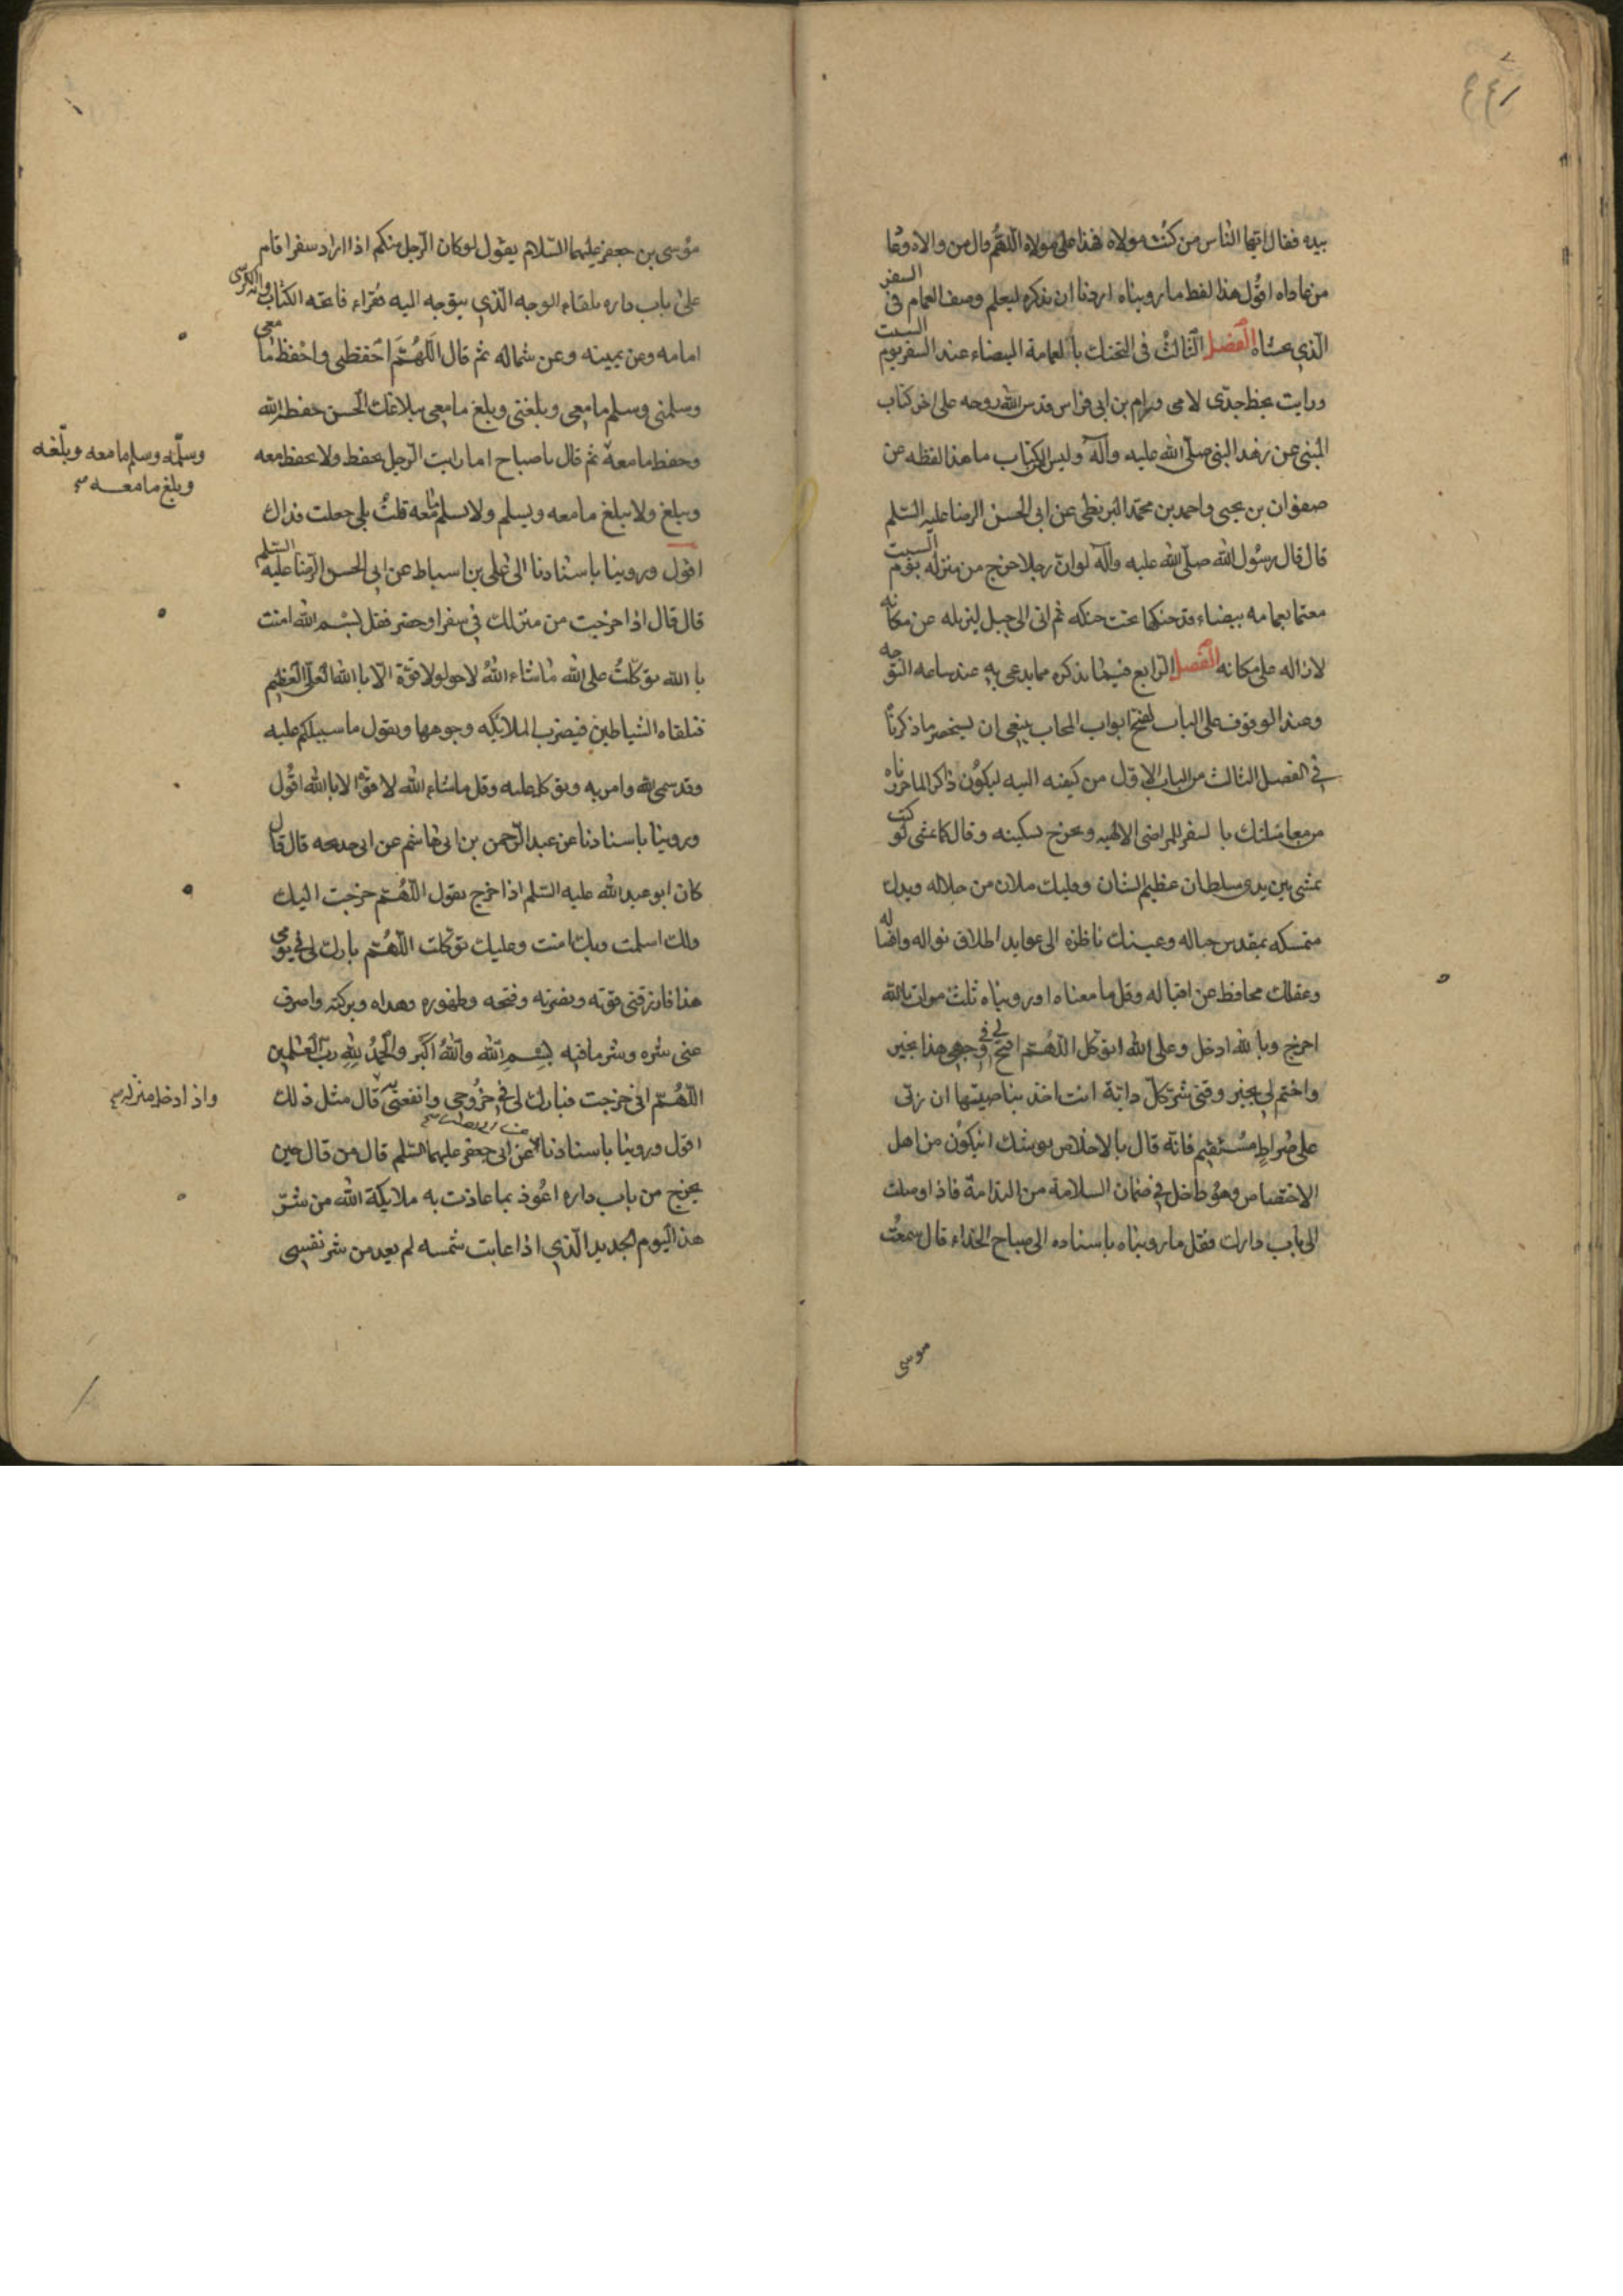 بيده فقال ايها الناس من كنت مولاه فهذا على مولاه اللهم وال من والاه وعا
من عاداه اقول هذا لفظ ما رويناه اردنا ان نذكره ليعلم وصف العمام فى السفر
الذي يخشاه الفصل الثالث فى التحنك بالعمامة البيضاء عند السفر يوم السبت
ورايت بخط جدى لامى ورام بن ابى فراس قدس الله روحه على اخر كتاب
المنبى عن زهد النبى صلى الله عليه وآله وليس الكتاب ما هذا لفظه عن
صفوان بن يحيى واحمد بن محمد البزنطى عن ابى الحسن الرضا عليه السلم
قال قال رسول الله صلى الله عليه وآله لو ان رجلا خرج من منزله يوم السبت
معتما بعمامه بيضاء قد حنكها تحت حنكه ثم اتى الى جبل ليزيله عن مكانه
لازاله على مكانه الفصل الرابع فيما نذكره مما يدعى به عند ساعه التوجه
وعند الوقوف على الباب لفتح ابواب المحاب ينبغى ان يستحضر ما ذكرنا
في الفصل الثالث من الباب الاول من كيفيه النيه ليكون ذاكرا لما حررناه
من معاملتك بالسفر للمراضى الالهيه وتخرج بسكينه وقال كما تمشى لو كنت
تمشى بين يدى سلطان عظيم الشان وقلبك ملان من جلاله ويدك
متمسكه بمقدس حباله وعينك ناظره الى عوايد اطلاق نواله وافضاله
وعقلك محافظ عن اقباله وقل ما معناه او رويناه ثلث مرات بالله
اخرج وبالله ادخل وعلى الله اتوكل اللهم افتح لى فى وجهى هذا بخير
واختم لى بخير وقنى شر كل دابة انت اخذ بناصيتها ان ربى
على صراط مستقيم فانه قال بالاخلاص يوشك ان يكون من اهل
الاختصاص وهو داخل في ضمان السلامة من الندامة فاذا وصلت
الى باب دارك فقل ما رويناه باسناده الى صباح الحذاء قال سمعت
موسى
موسى بن جعفر عليهما السلام يقول لو كان الرجل منكم اذا اراد سفرا قام
على باب داره تلقاء الوجه الذي يتوجه اليه فقراء فاتحه الكتاب واية الكرسى
امامه وعن يمينه وعن شماله ثم قال اللهم احفظنى واحفظ ما معى
وسلمنى وسلم ما معى وبلغنى وبلغ ما معى ببلاغك الحسن حفظه الله
وحفظ ما معه ثم قال يا صباح اما رايت الرجل يحفظ ولا يحفظ معه
وسلمه وسلم ما معه وبلغه
وبلغ ما معه
ويبلغ ولا يبلغ ما معه ويسلم ولا يسلم ما معه قلت بلى جعلت فداك
اقول وروينا باسنادنا الى على بن اسباط عن ابى الحسن الرضا عليه السلم
قال قال اذا خرجت من منزلك في سفر او حضر فقل بسم الله امنت
بالله توكلت على الله ما شاء الله لا حول ولا قوة الا بالله العلى العظيم
فتلقاه الشياطين فيضرب الملائكه وجوهها ويقول ما سبيلكم عليه
وقد سمى الله وامن به وتوكل عليه وقل ما شاء الله لا قوة الا بالله اقول
وروينا باسنادنا عن عبد الرحمن بن ابى هاشم عن ابى خديجه قال قال
كان ابو عبد الله عليه السلم اذا خرج يقول اللهم خرجت اليك
ولك اسلمت وبك امنت وعليك توكلت اللهم بارك لى في يومى
هذا فارزقنى قوته ونصرته وفتحه وطهوره وهداه وبركته واصرف
عنى شره وشر ما فيه بسم الله والله اكبر والحمد لله رب العلمين
اللهم انى خرجت فبارك لى في خروجى وانفعنى قال مثل ذلك
واذا دخل منزله
اقول وروينا باسنادنا عن ابى جعفر عليهما السلم قال من قال حين
يخرج من باب داره اعوذ بما عاذت به ملائكة الله من شر
هذا اليوم الجديد الذي اذا غابت شمسه لم يعد من شر نفسى